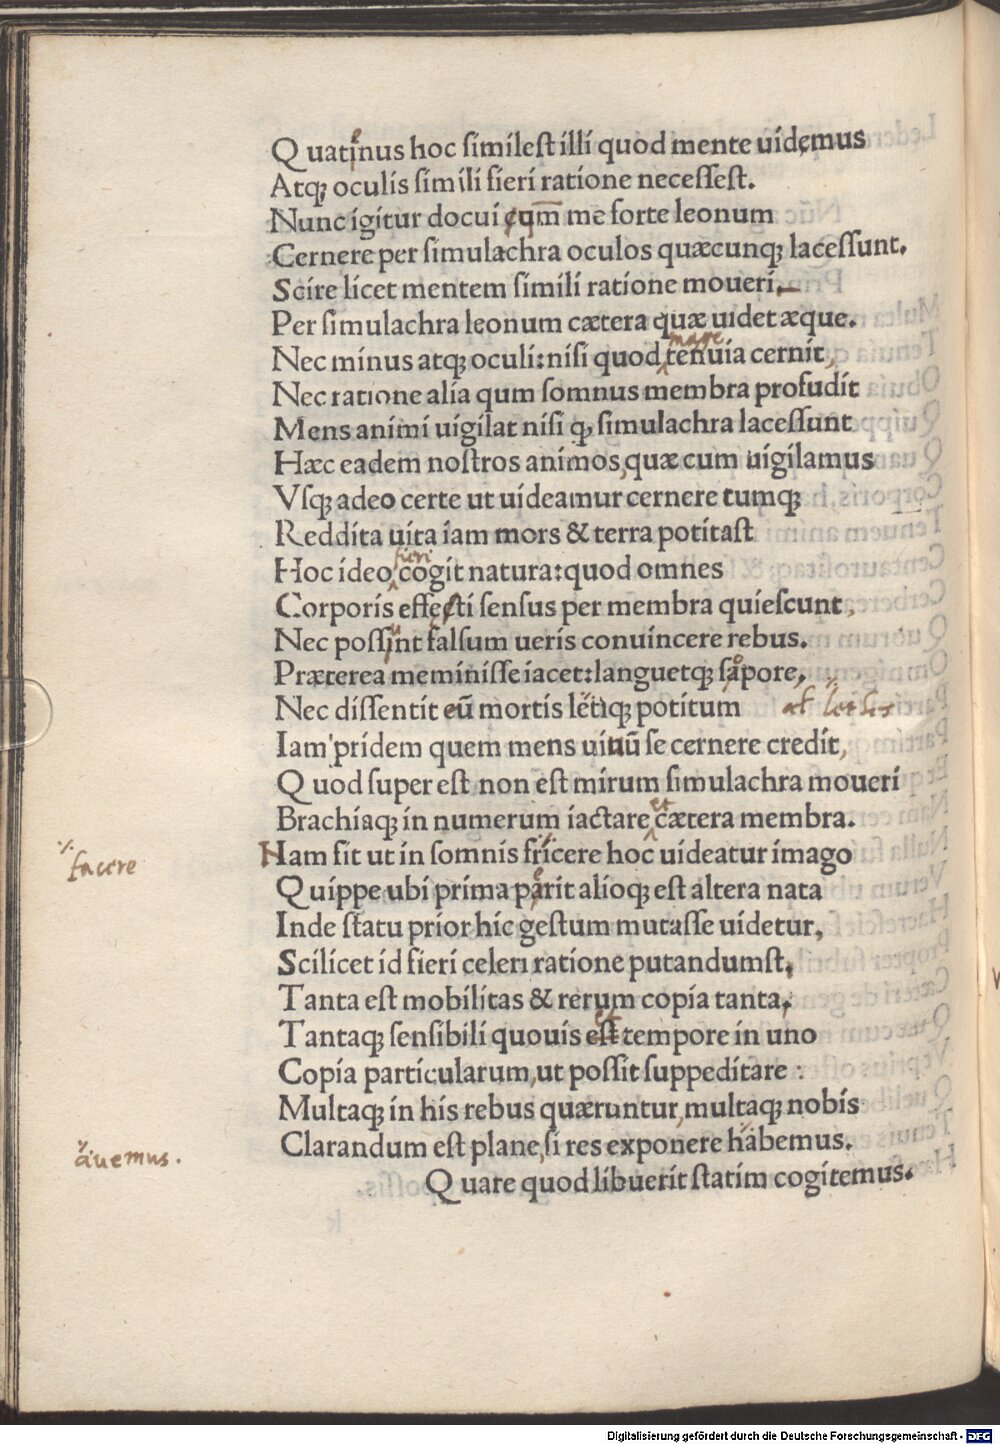 Quatinus hoc similest illi quod mente uidemus
Atq; oculis simili fieri ratione necessest.
Nunc igitur docui cum me forte leonum
Cernere per simulachra oculos quæcunq; lacessunt.
Scire licet mentem simili ratione moueri.
Per simulachra leonum cætera quæ uidet æque.
mage
Nec minus atq; oculi: nisi quod tenuia cernit,
Nec ratione alia qum somnus membra profudit
Mens animi uigilat nisi q, simulachra lacessunt
Hæc eadem nostros animos, quæ cum uigilamus
Vsq; adeo certe ut uideamur cernere tumq;
Reddita uita iam mors & terra potitast
fieri
Hoc ideo cogit natura: quod omnes
Corporis effecti sensus per membra quiescunt,
Nec possint falsum ueris conuincere rebus.
Præterea meminisse iacet: languetq; sapore,
Nec dissentit eū mortis letiq; potitum
Iam pridem quem mens uiuū se cernere credit,
Quod super est non est mirum simulachra moueri
et
Brachiaq; in numerum iactare cætera membra.
Nam fit ut in somnis fricere hoc uideatur imago
facere
Quippe ubi prima parit alioq; est altera nata
Inde statu prior hic gestum mutasse uidetur,
Scilicet id fieri celeri ratione putandumst,
Tanta est mobilitas & rerum copia tanta,
et
Tantaq; sensibili quouis est tempore in uno
Copia particularum, ut possit suppeditare :
Multaq; in his rebus quæruntur, multaq; nobis
Clarandum est plane, si res exponere habemus.
auemus.
Quare quod libuerit statim cogitemus.
Digitalisierung gefördert durch die Deutsche Forschungsgemeinschaft - DFG